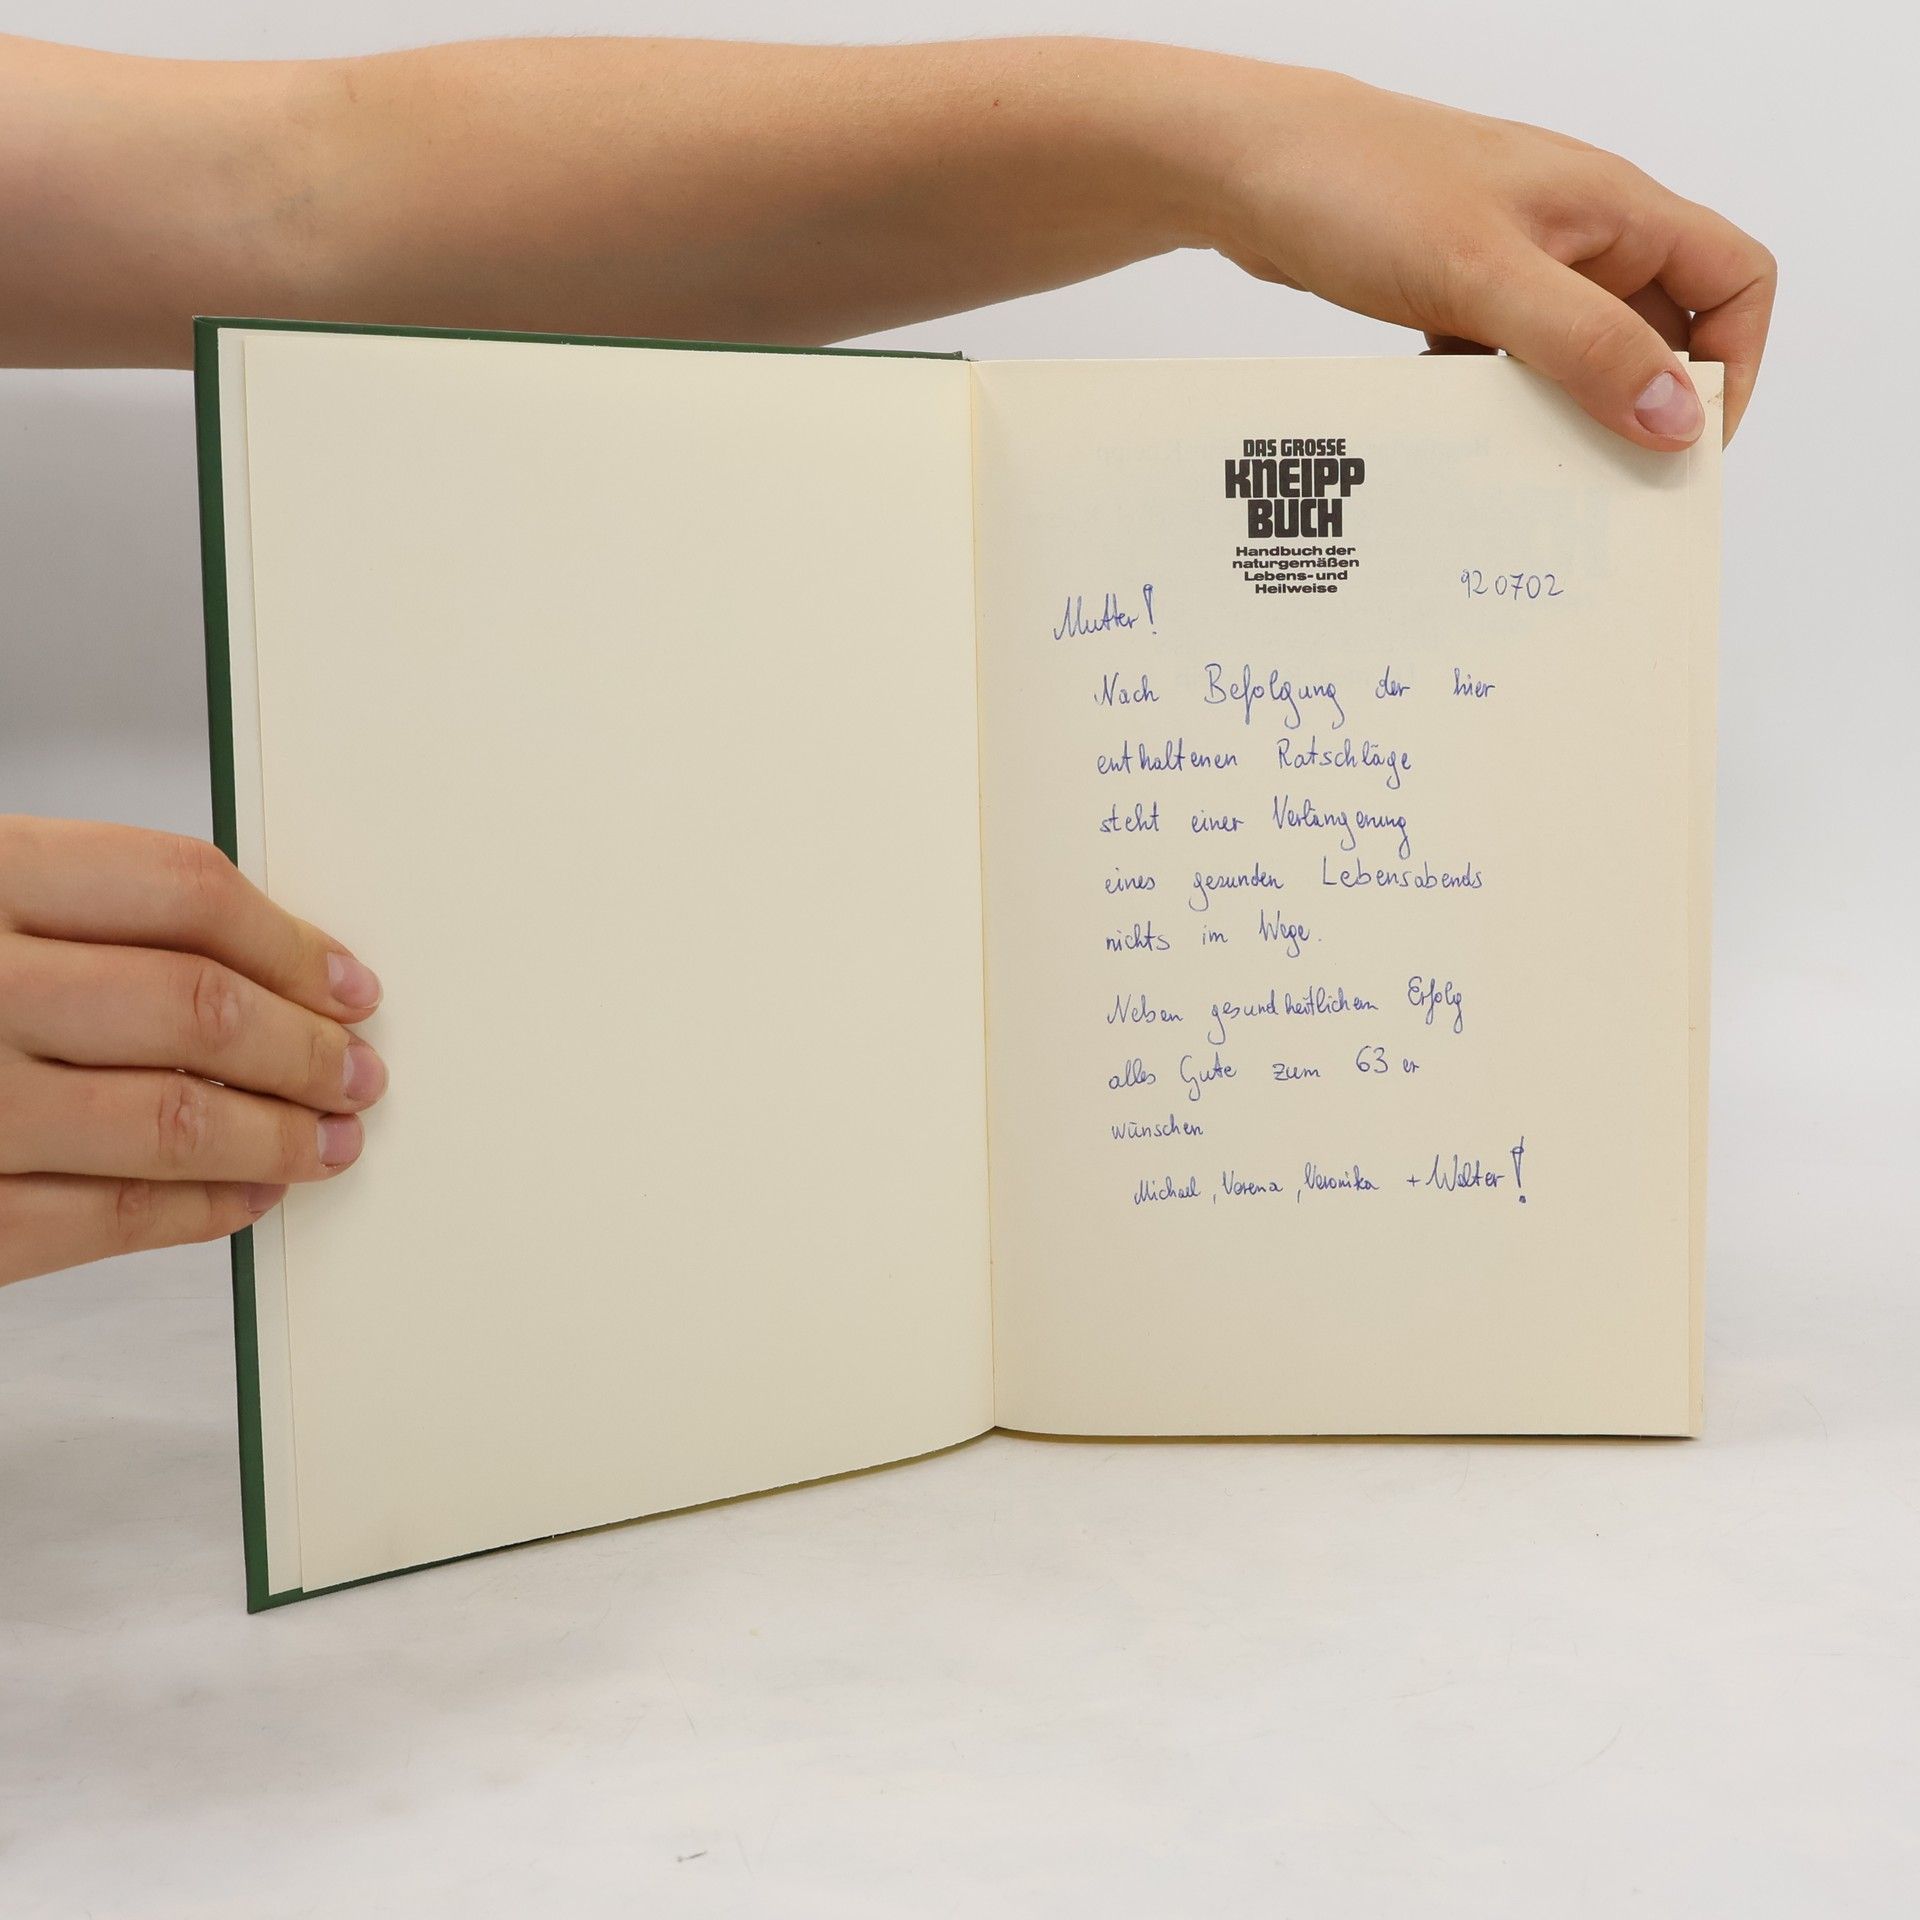 DAS GROSSE
KNEIPP
BUCH
Handbuch der
naturgemäßen
Lebens- und
Heilweise
920702
Mutter!
Nach Befolgung der hier
enthaltenen Ratschläge
steht einer Verlängerung
eines gesunden Lebensabends
nichts im Wege.
Neben gesundheitlichem Erfolg
alles Gute zum 63 er
wünschen
Michael, Verena, Veronika + Walter!